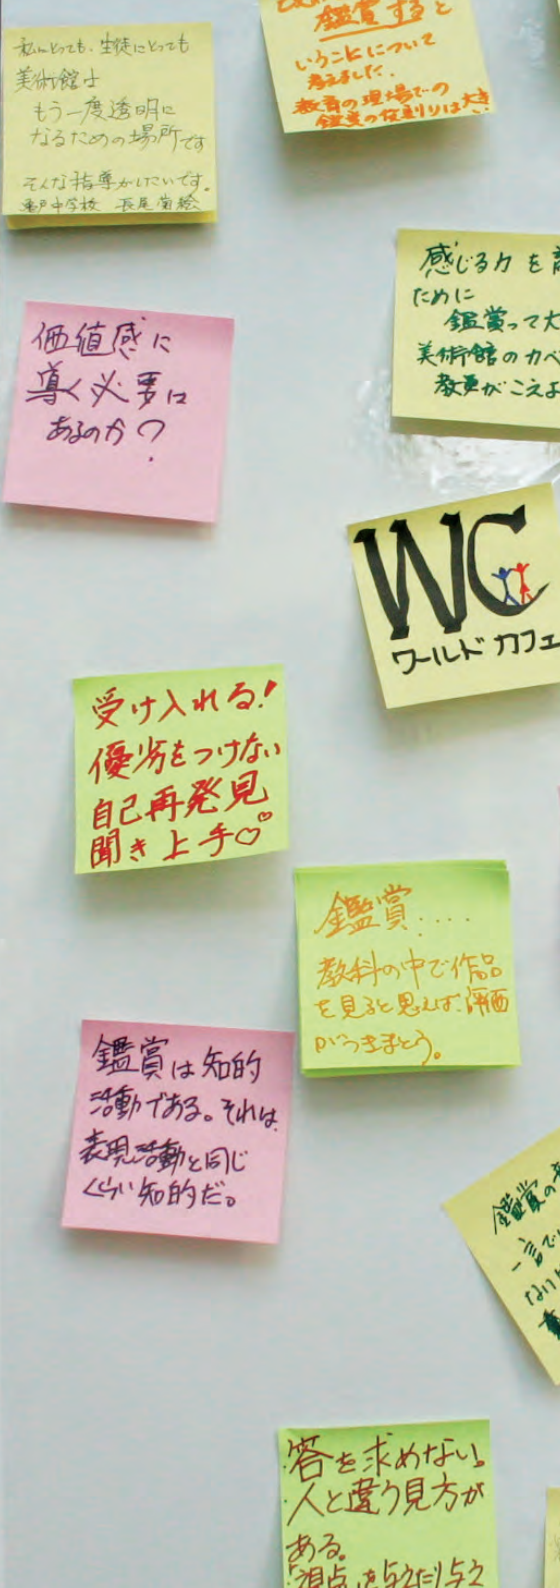 私にとっても、生徒にとっても
美術館は
もう一度透明に
なるための場所です
そんな指導がしたいです。
亀戸中学校 長尾菊絵
鑑賞すると
いうことについて
考えました。
教育の現場での
鑑賞の役割りは大き
感じる力を育
ために
鑑賞って大
美術館のカベ
教員がこえよ
価値感に
導く必要は
あるのか?
WC
ワールドカフェ
受け入れる!
優劣をつけない
自己再発見
聞き上手♡
鑑賞....
教科の中で作品
を見ると思えば、評価
がつきまとう。
鑑賞は知的
活動である。それは、
表現活動と同じ
くらい知的だ。
鑑賞の
一言で
ないと
答を求めない。
人と違う見方が
ある。
視点を与えたり与え